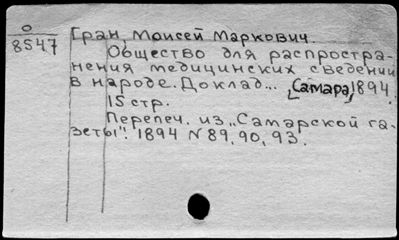 О
8547
Гран, Моисей Маркович.
Общество для распростра-
нения медицинских сведений
в народе. Доклад... [Самара, 1894.
15 стр.
Перепеч. из „Самарской га-
зеты". 1894 N 89, 90, 93.